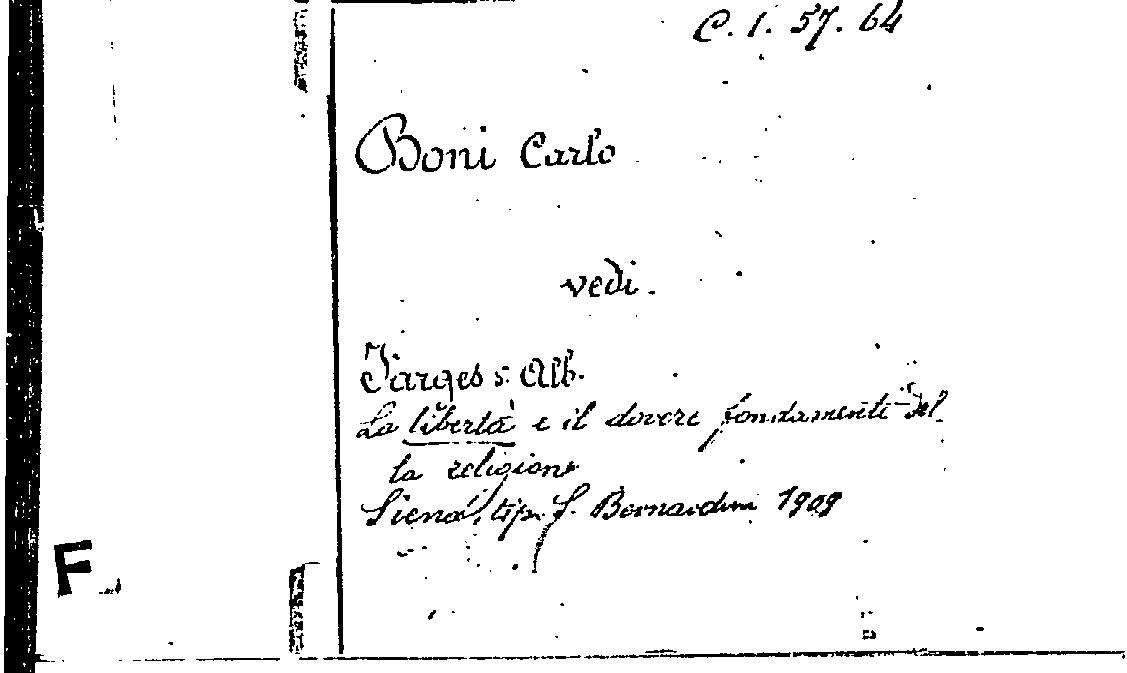 C. 1. 57. 64
Boni Carlo
vedi.
Farges s. Alb.
La libertà e il dovere fondamenti del
la religione
Siena, tip. S. Bernardino 1909
F